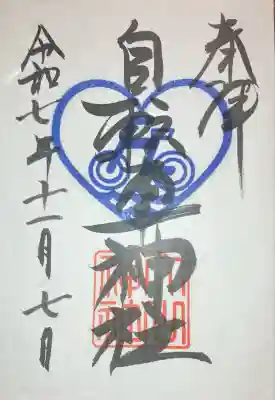 奉拝
自転車神社
令和七年十一月七日